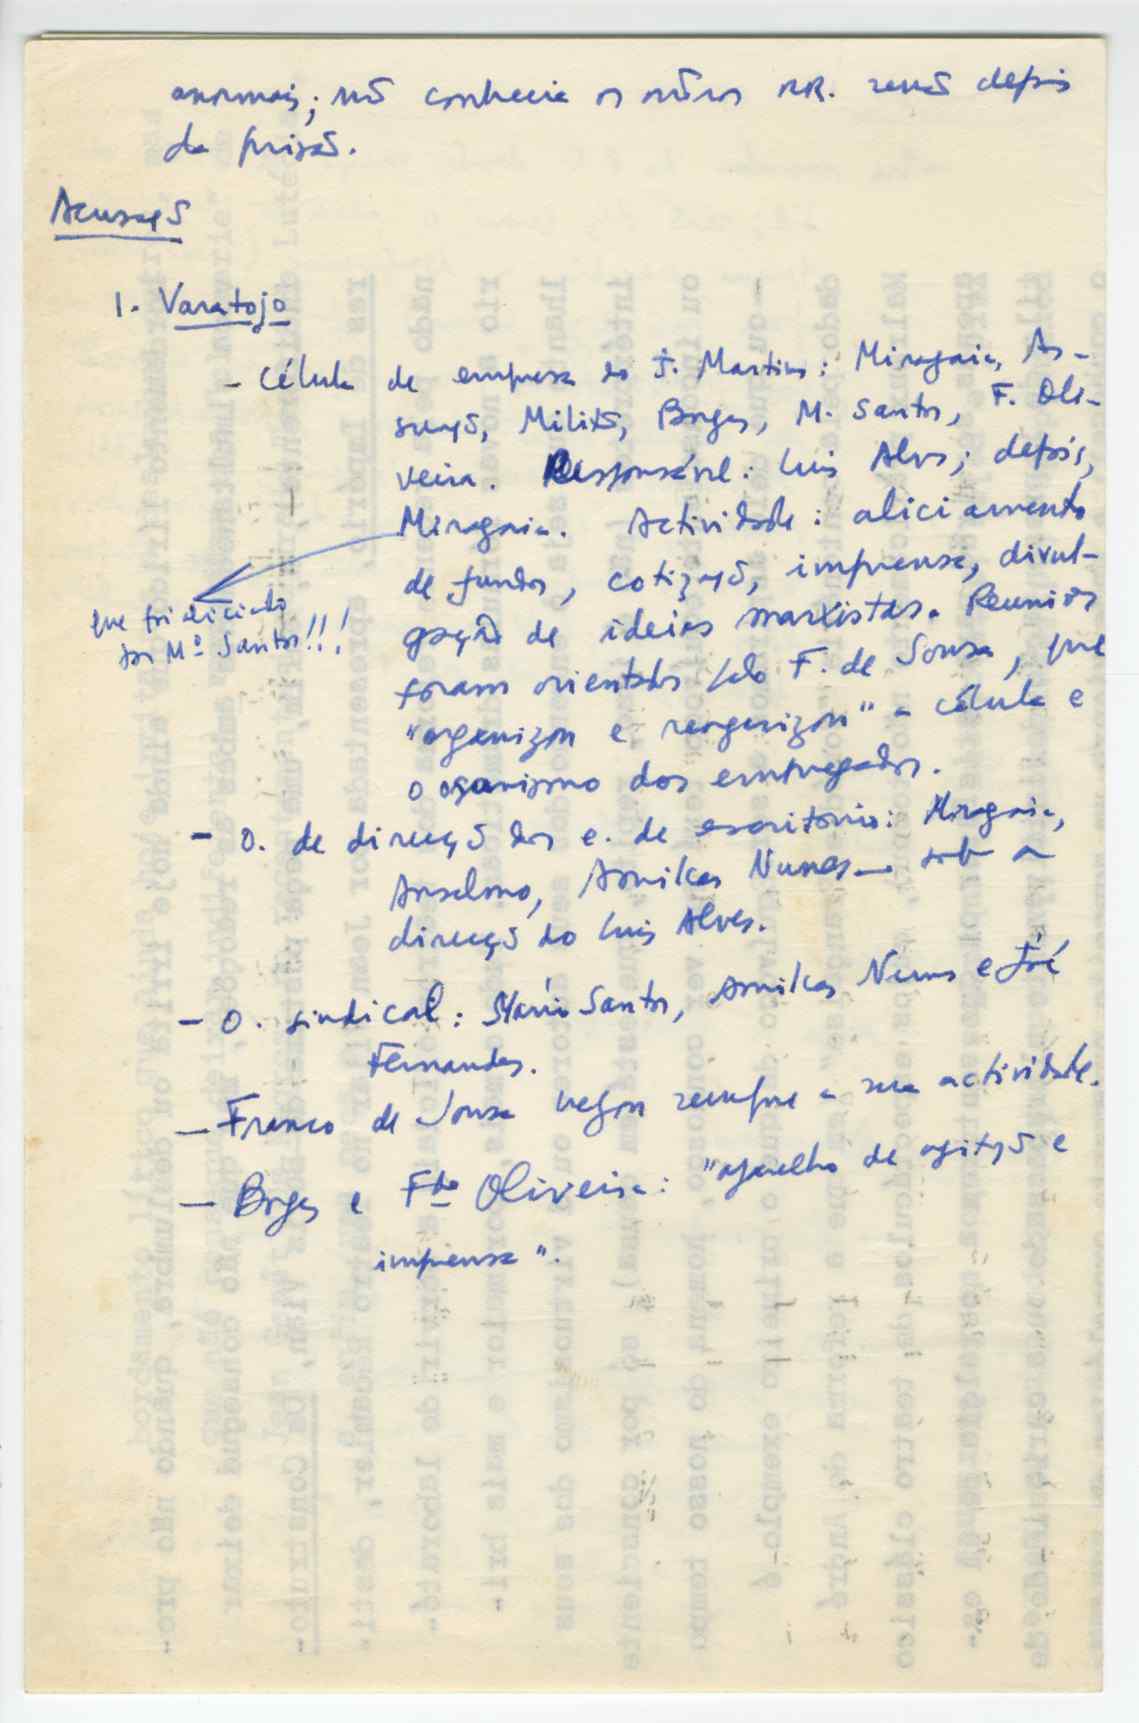 anormais; não conhecia os outros RR. senão depois
da prisão.
Acusação
1. Varatojo
- Célula de empresa do J. Martins: Miragaia, As-
sunção, Militão, Borges, M. Santos, F. Oli-
veira. Responsável: Luis Alves; depois,
Miragaia. Actividade: aliciamento
de fundos, cotização, imprensa, divul-
gação de ideias marxistas. Reuniões
que foi aliciado
por Mº Santos!!!
foram orientadas pelo F. de Sousa, que
"organizou e reorganizou" a célula e
o oganismo dos empregados.
- O. de direcção dos e. de escritório: Miragaia,
Anselmo, Amilcar Nunes — sob a
direcção do Luis Alves.
- O. sindical: Mário Santos, Amilcar Nunes e José
Fernandes.
- Franco de Sousa negou sempre a sua actividade.
- Borges e Fdo Oliveira: "aparelho de agitação e
imprensa".